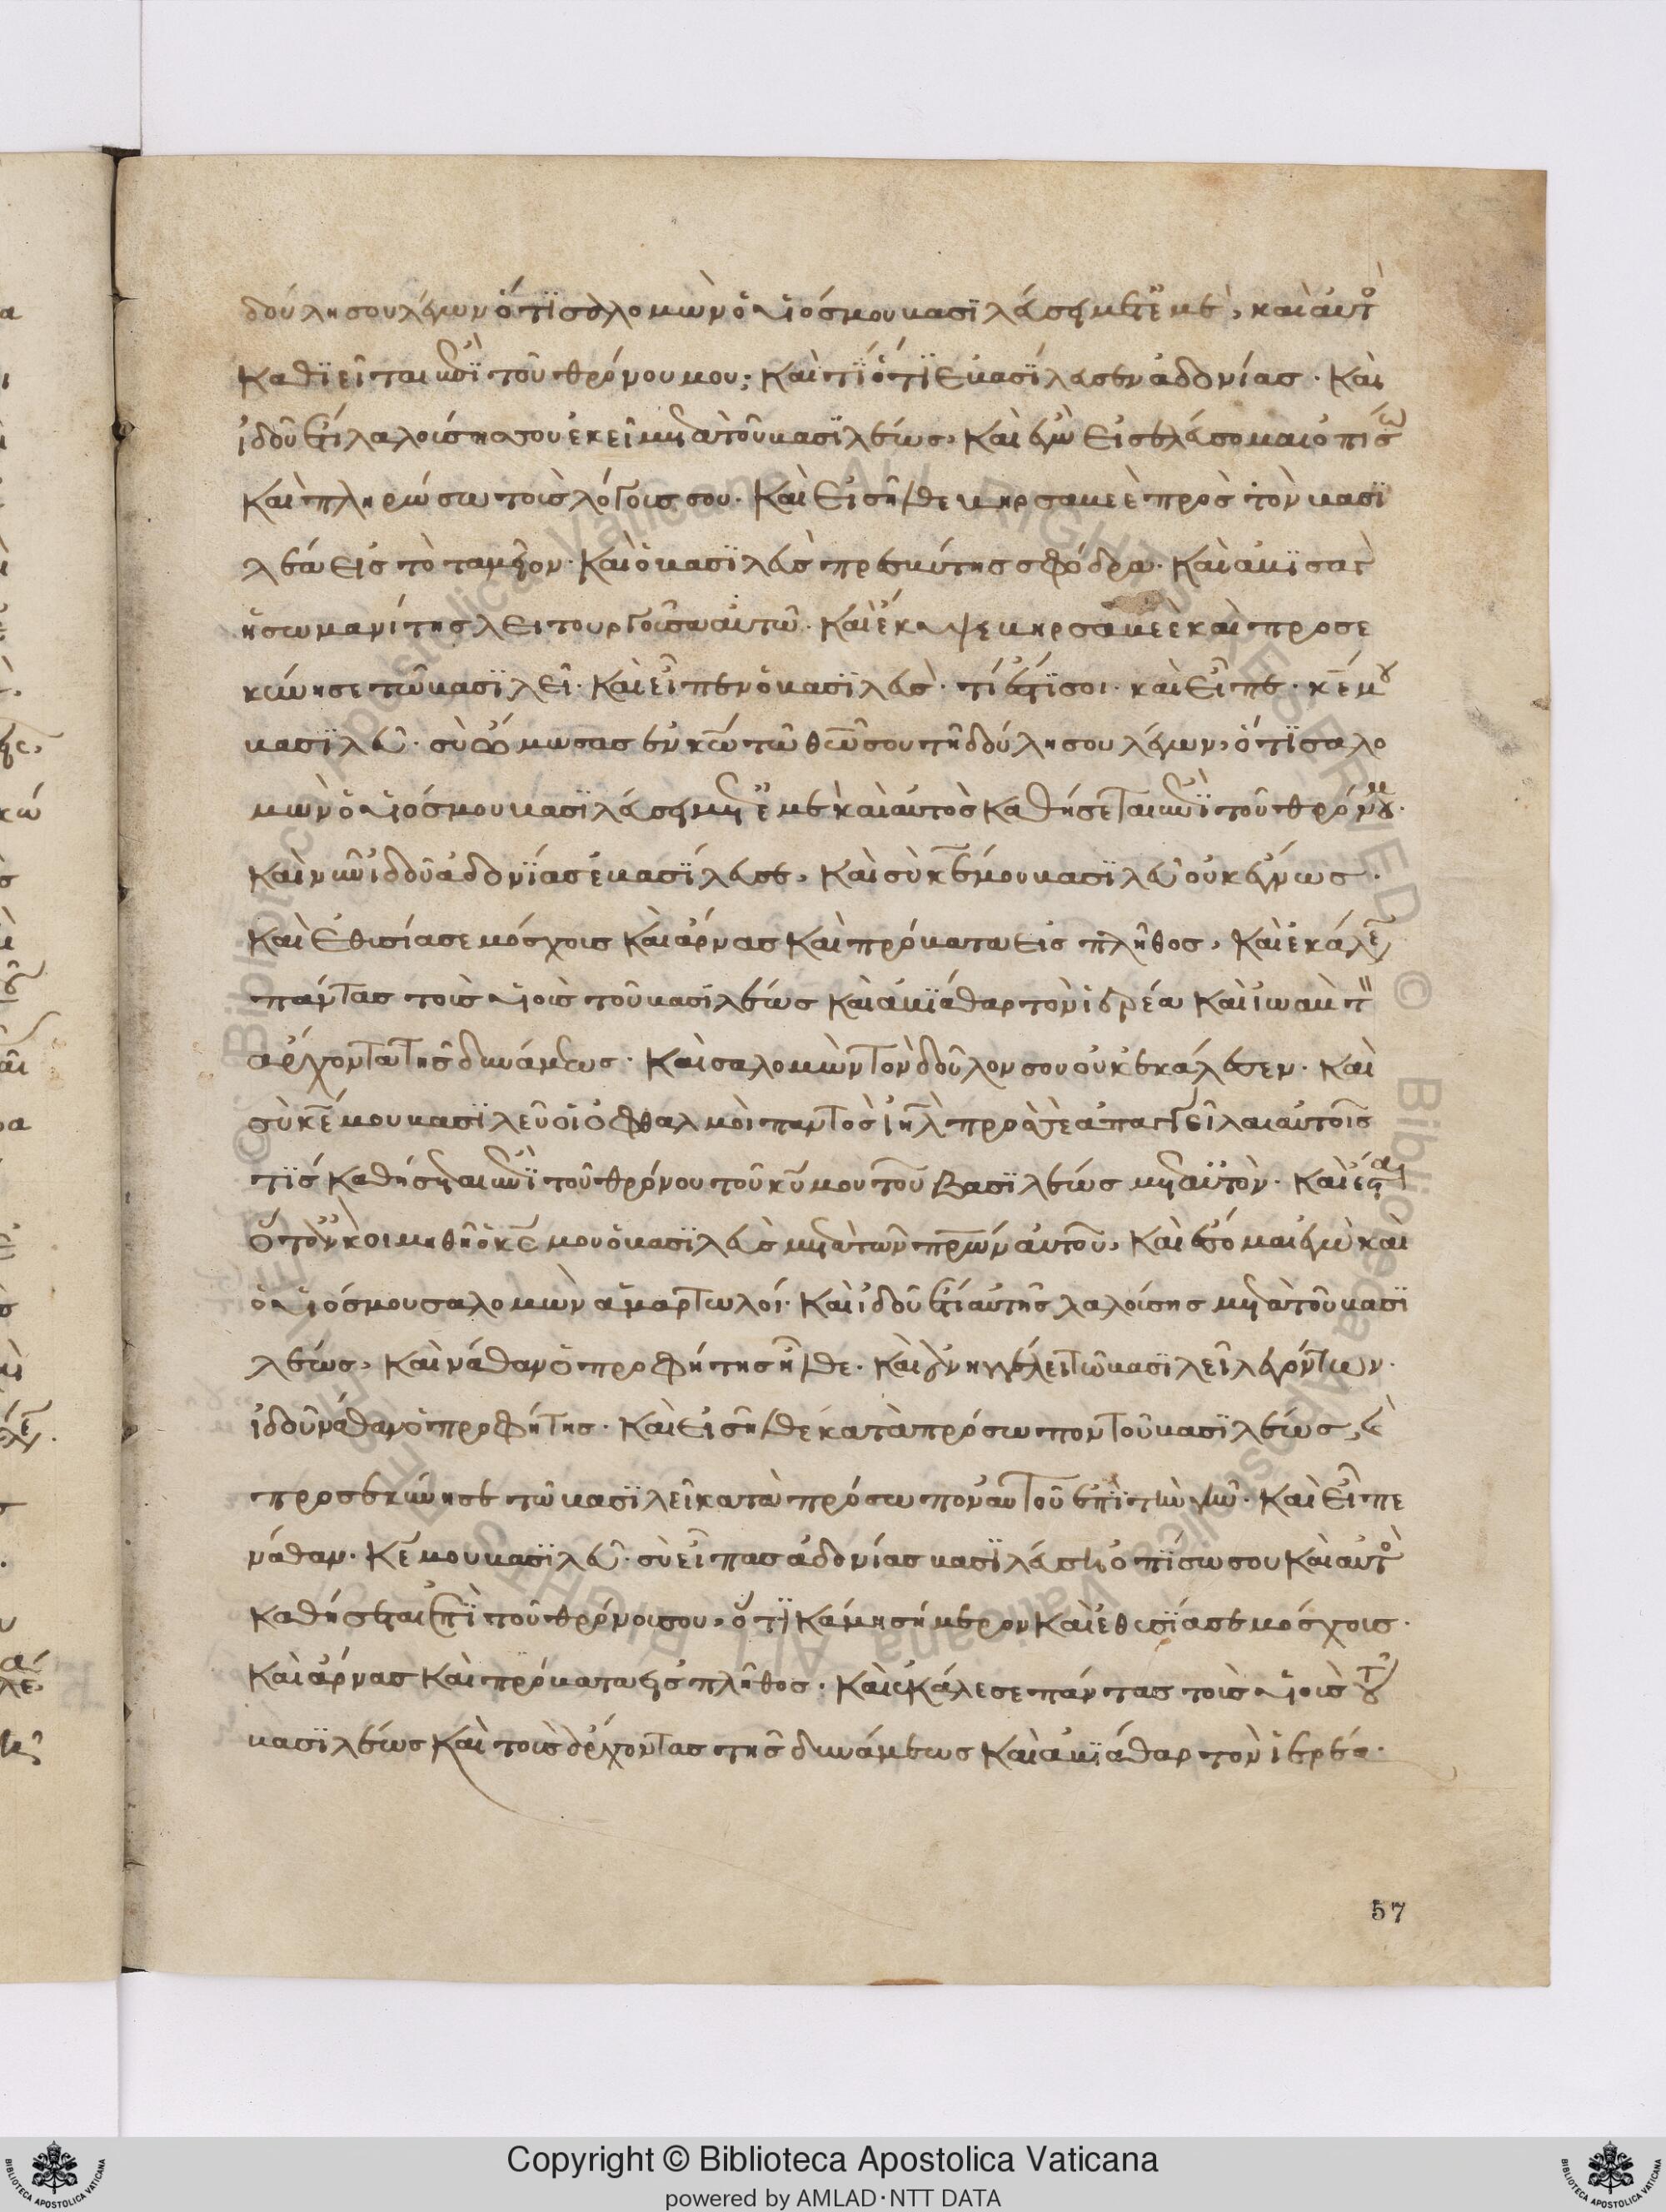 δούλη σου λέγων ὅτι σολομὼν ὁ υἱός μου βασιλεύσει μετ ἐμὲ, καὶ αὐτὸ
καθιεῖται ἐπὶ τοῦ θρόνου μου; καὶ τί ὅτι ἐβασίλευσεν ἀδονίας · καὶ
ἰδοῦ ἔτι λαλούσης σου ἐκεῖ μετὰ τοῦ βασιλέως, καὶ ἐγὼ εἰσελεύσομαι ὀπίσω
καὶ πληρώσω τοὺς λόγους σου · καὶ εἰσῆλθε βηρσαβεὲ πρὸς τὸν βασι
λέα εἰς τὸ ταμεῖον · καὶ ὁ βασιλεὺς πρεσβύτης σφόδρα · καὶ ἀβισὰτ
ἡ σωμανίτης λειτουργοῦσα αὐτῶ · καὶ ἔκυψε βηρσαβεὲ καὶ προσε
κύνησε τῶ βασιλεῖ · καὶ εἶπεν ὁ βασιλεὺς · τί ἐστί σοι · καὶ εἶπε · κέ μου
βασιλεῦ · σὺ ὤμωσας ἐν κω τῶ θω σου τῆ δούλη σου λέγων, ὅτι σαλο
μὼν ὁ υἱός μου βασιλεύσει μετ ἐμὲ καὶ αὐτὸς καθήσεται ἐπὶ τοῦ θρόνου μου ·
καὶ νῦν ἰδοῦ ἀδονίας ἐβασίλευσε, καὶ σὺ κέ μου βασιλεῦ οὐκ ἔγνως ·
καὶ ἐθυσίασε μόσχους καὶ ἄρνας καὶ πρόβατα εἰς πλῆθος, καὶ ἐκάλεσε
πάντας τοὺς υἱοὺς τοῦ βασιλέως καὶ ἀβιάθαρ τὸν ἱερέα καὶ ἰωαβ τ
ἄρχοντα τῆς δυνάμεως · καὶ σαλομὼν τὸν δοῦλον σου οὐκ ἐκάλεσεν · καὶ
σὺ κέ μου βασιλεῦ οἱ ὀφθαλμοὶ παντὸς ιηλ πρὸς σὲ ἀπαγγεῖλαι αὐτοῖς
τίς καθήσεται ἐπὶ τοῦ θρόνου τοῦ κυ μου τοῦ βασιλέως μετ αὐτὸν · καὶ ἔσται
ὅταν κοιμηθῆ ὁ κς μου ὁ βασιλεὺς μετὰ τῶν πρων αὐτοῦ, καὶ ἔσομαι ἐγὼ καὶ
ὁ υἱός μου σαλομὼν ἁμαρτωλοί · καὶ ἰδοῦ ἔτι αὐτῆς λαλούσης μετὰ τοῦ βασι
λέως, καὶ νάθαν ὁ προφήτης ἦλθε · καὶ ἀνηγγέλει τῶ βασιλεῖ λεγόντων ·
ἰδοῦ νάθαν ὁ προφήτης · καὶ εἰσῆλθε κατὰ πρόσωπον τοῦ βασιλέως, καὶ
προσεκύνησε τῶ βασιλεῖ κατὰ πρόσωπον αὐτοῦ ἐπὶ τὴν γῆν · καὶ εἶπε
νάθαν · κέ μου βασιλεῦ · σὺ εἶπας ἀδονίας βασιλεύσει ὀπίσω σου καὶ αὐτὸ
καθήσεται ἐπὶ τοῦ θρόνου σου, ὅτι κατέβη σήμερον καὶ ἐθυσίασε μόσχους ·
καὶ ἄρνας καὶ πρόβατα εἰς πλῆθος · καὶ ἐκάλεσε πάντας τοὺς υἱοὺς τοῦ
βασιλέως καὶ τοὺς ἄρχοντας τῆς δυνάμεως καὶ ἀβιάθαρ τὸν ἱερέα ·
57
Copyright © Biblioteca Apostolica Vaticana
powered by AMLAD·NTT DATA